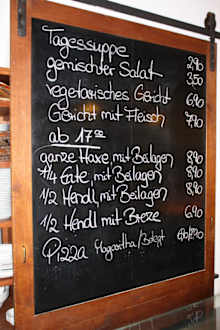 Tagessuppe 2,90
gemischter Salat 3,50
vegetarisches Gericht 6,90
Gericht mit Fleisch 7,90
ab 17 00
ganze Haxe mit Beilagen 8,90
1/4 Ente mit Beilagen 8,90
1/2 Hendl mit Beilagen 8,90
1/2 Hendl mit Breze 6,90
Pizza Margaritha/Belegt 6,90/8,90